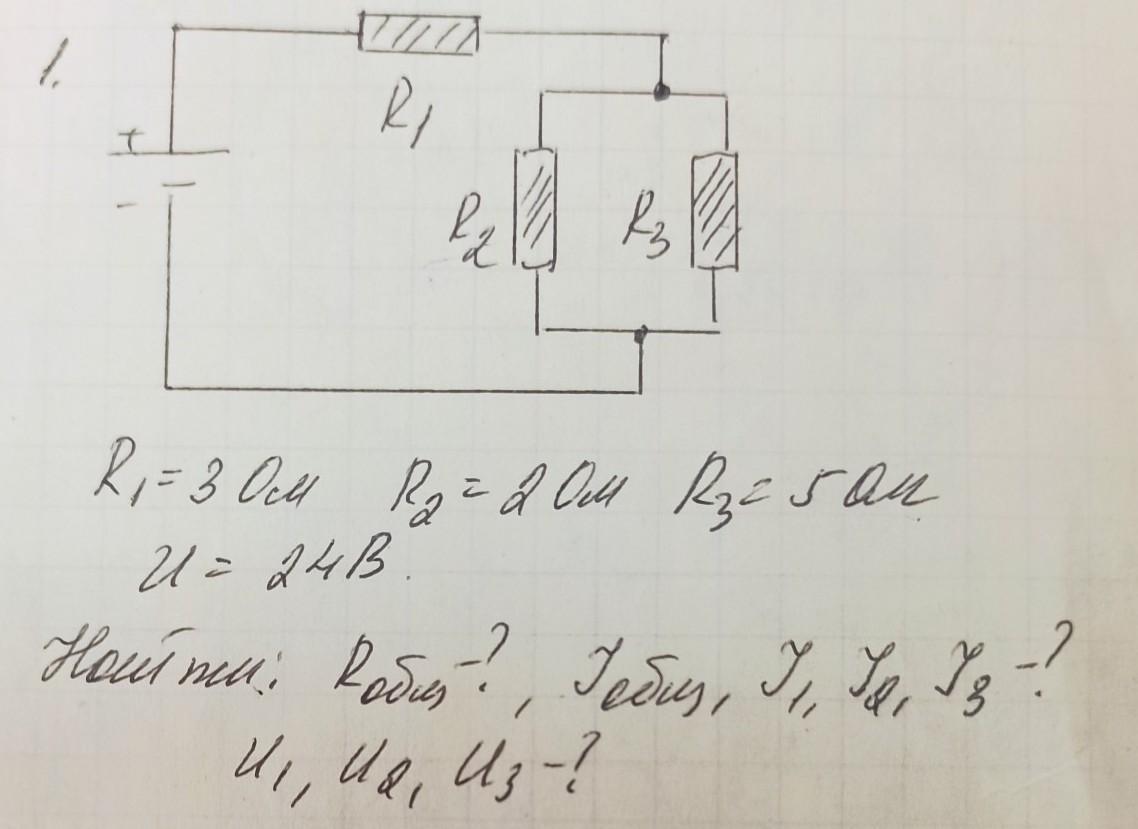 1.
R1
+
-
R2 R3
R1=3 Ом R2=2 Ом R3=5 Ом
U= 24В.
Найти: Rобщ-?, Iобщ, I1, I2, I3-?
U1, U2, U3-?